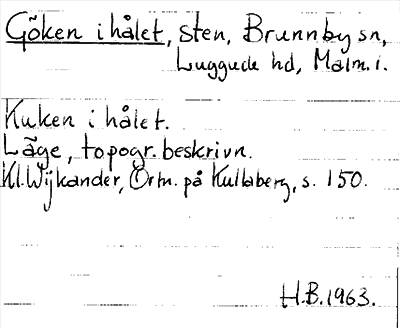 Göken i hålet, sten, Brunnby sn,
Luggude hd, Malm. l.
Kuken i hålet.
Läge, topogr. beskrivn.
Kl. Wijkander, Ortn. på Kullaberg, s. 150.
H.B. 1963.